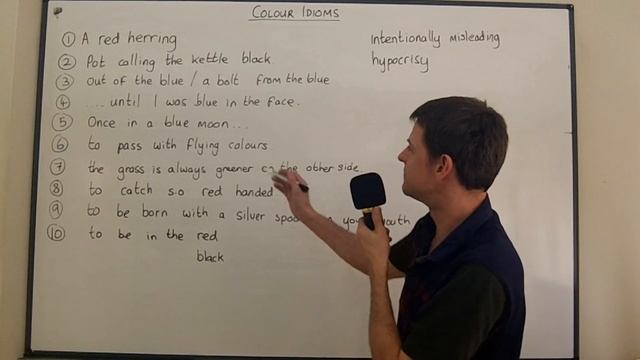 COLOUR IDIOMS
① A red herring Intentionally misleading
② Pot calling the kettle black. hypocrisy
③ Out of the blue / a bolt from the blue
④ .... until I was blue in the face.
⑤ Once in a blue moon...
⑥ to pass with flying colours
⑦ the grass is always greener the other side.
⑧ to catch s.o red handed
⑨ to be born with a silver
⑩ to be in the red
black